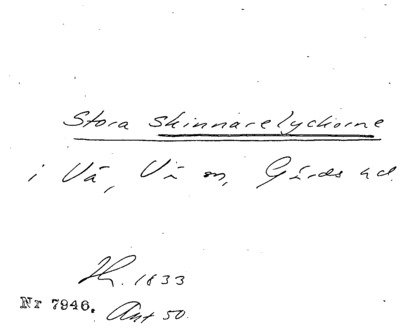 Stora Skinnarelyckorne
i Vä, Vä sn, Gärds hd.
Th. 1833
Nr 7946. Ant 50.